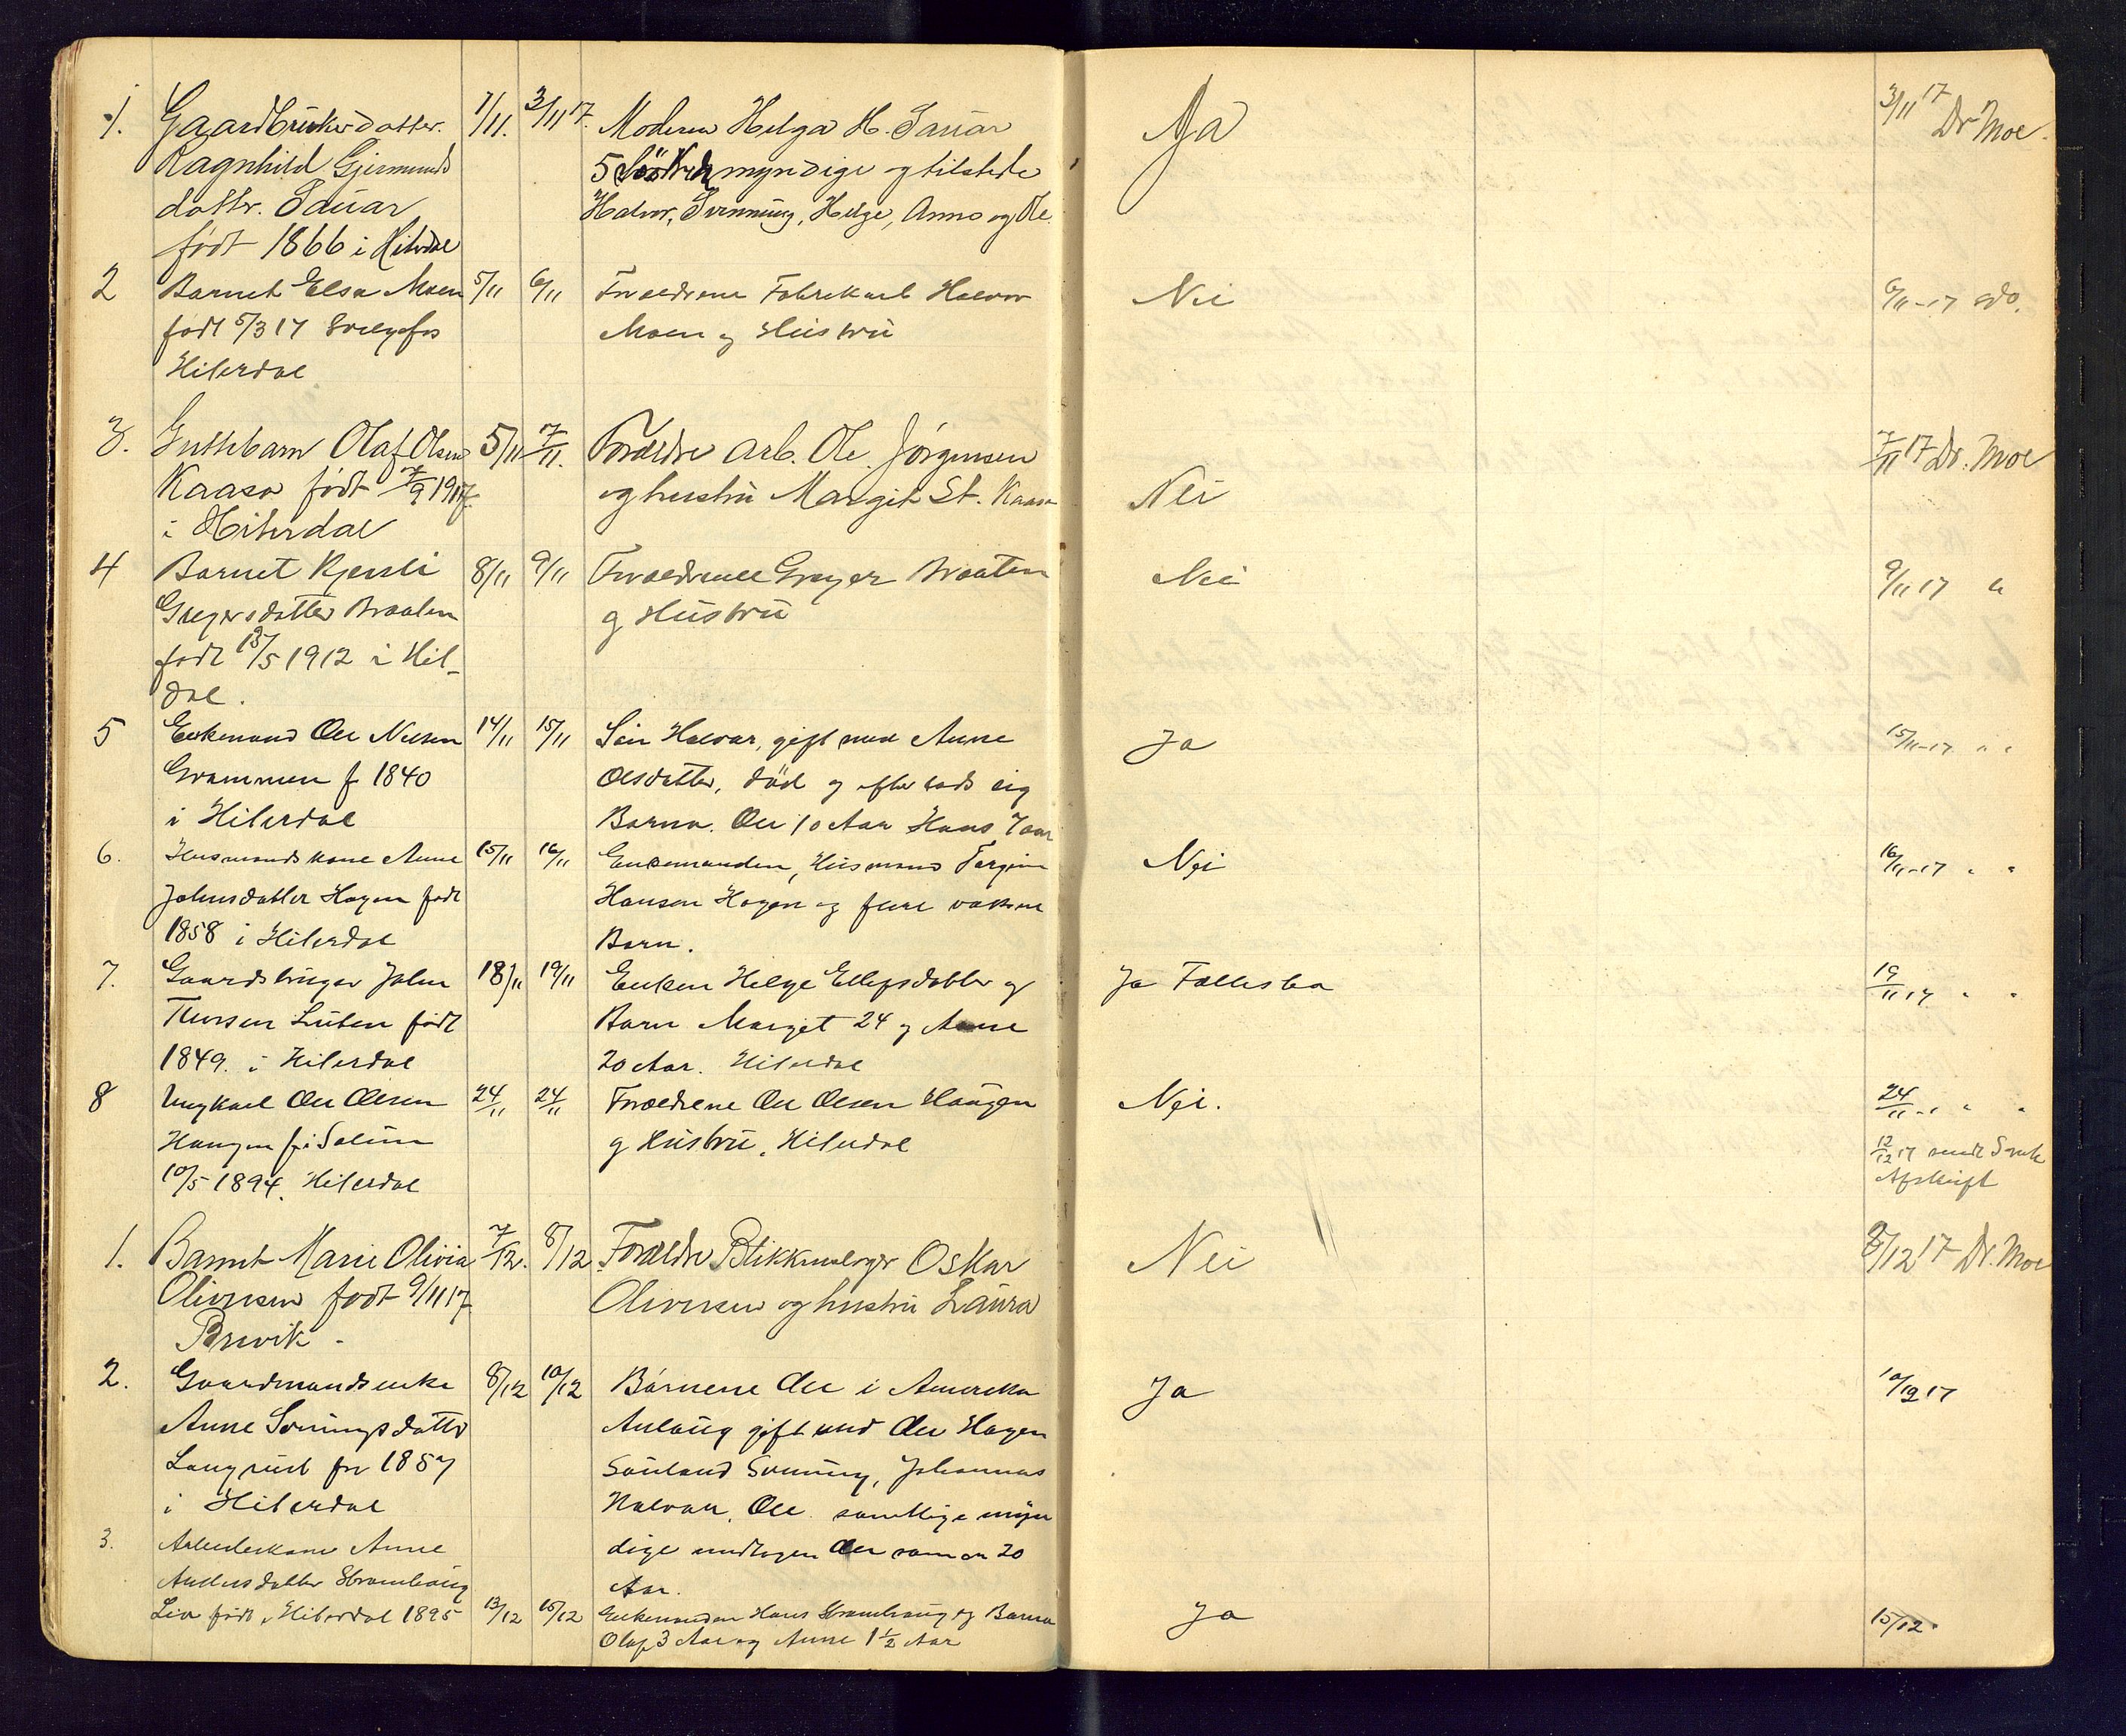 1. Gaardbrukerdatter. 1/11. 3/11 17. Moderen Helga H. Sauar Ja 3/11 17 Dr Moe.
Ragnhild Gjermunds 5 Søskend myndige og tilstede
dattr. Sauar Halvor, Svenning, Helge, Anne og Ole
født 1866 i Hiterdal
2 Barnet Elsa Moen 5/11 6/11 Forældrene Fabrikarb Halvor Nei 6/11-17 do.
født 5/3 17 Svelgfos Moen og Hustru
Hiterdal
3. Guttebarn Olaf Olsen 5/11 7/11. Forældre Arb. Ole Jørgensen 7/11 17 Dr. Moe
Kaasa født 7/9 1917 og hustru Margit St. Kaasa Nei
i Hiterdal
4 Barnet Kjersti 8/11 9/11 Forældrene Greger Braaten Nei 9/11 17 "
Gregersdatter Braaten og Hustru
født /5 1912 i Hit-
dal.
5 Enkemand Ole Nilsen 14/11 15/11 Søn Halvor, gift med Anne Ja 15/11-17 " "
Grammen f 1840 Olsdatter, død og efterlods sig
i Hiterdal Barna. Ole 10 Aar Hans 7 aar
6. Husmandskone Anne 15/11 16/11 Enkemanden, Husmand Torgrim Nei 16/11-17 " "
Johnsdatter Hagen født Hansen Hagen og flere voksne
1858 i Hiterdal Barn.
7. Gaardbruger John 18/11 19/11 Enken Helge Ellefsdatter og Ja Fællesbo 19/11 17 " "
født Barn Margit 24 og Anne
1849. i Hiterdal 20 Aar. Hiterdal
8 Ungkarl Ole Olsen 24/11 24/11 Forældrene Ole Olsen Haugen Nei. 24/11 - " "
Haugen f i Solum og Hustru, Hiterdal 12/12 17 sendt
10/5 1894. Hiterdal Afskrift
1. Barnet Marie Olivia 7/12. 8/12 Forældre Blikkenslager Oskar Nei 8/12 17 Dr. Moe
Oliversen født 9/11 17 Oliversen og hustru Laura
Brevik -
2. Gaardmandsenke 8/12 10/12 Børnene Ole i Amerika Ja 10/12 17
Anne Svenningsdatter Aslaug gift med Ole Hagen
Langrud før 1857 Sauland Svenning, Johannes
i Hiterdal Halvor, Ole samtlige myn
3. Arbeiderkone Anne dige undtagen Ole som er 20
Andersdatter Stramhaug Aar.
Lia født i Hiterdal 1895 13/12 15/12 Enkemanden Hans Stramhaug og Barna Ja 15/12.
Olaf 3 Aar og Anne 1 1/2 Aar